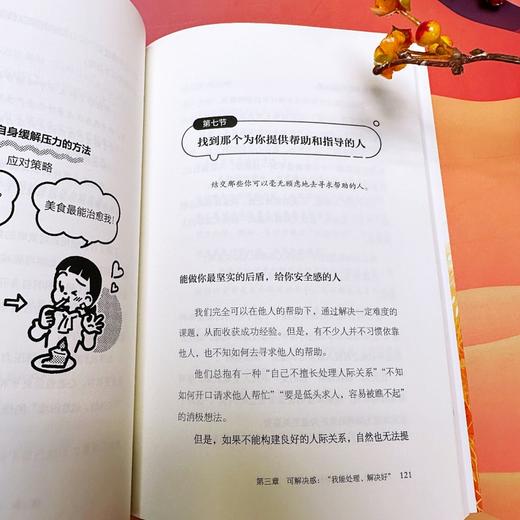 自身缓解压力的方法
应对策略
美食最能治愈我！
第七节
找到那个为你提供帮助和指导的人
结交那些你可以毫无顾虑地去寻求帮助的人。
能做你最坚实的后盾，给你安全感的人
我们完全可以在他人的帮助下，通过解决一定难度的
课题，从而收获成功经验。但是，有不少人并不习惯依靠
他人，也不知如何去寻求他人的帮助。
他们总抱有一种“自己不擅长处理人际关系”“不知
如何开口请求他人帮忙”“要是低头求人，容易被瞧不起”
的消极想法。
但是，如果不能构建良好的人际关系，自然也无法提
第三章 可解决感：“我能处理，解决好” 121